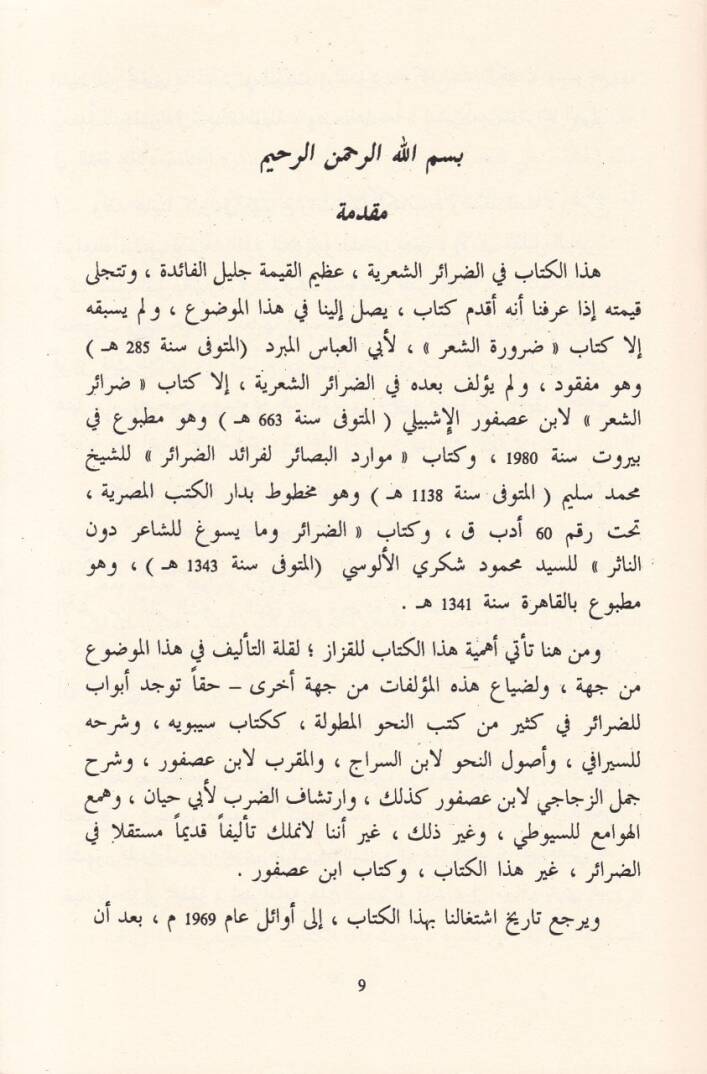 بسم الله الرحمن الرحيم
مقدمة
هذا الكتاب في الضرائر الشعرية ، عظيم القيمة جليل الفائدة ، وتتجلى
قيمته إذا عرفنا أنه أقدم كتاب ، يصل إلينا في هذا الموضوع ، ولم يسبقه
إلا كتاب « ضرورة الشعر » ، لأبي العباس المبرد (المتوفى سنة 285 هـ )
وهو مفقود ، ولم يؤلف بعده في الضرائر الشعرية ، إلا كتاب « ضرائر
الشعر » لابن عصفور الإشبيلي ( المتوفى سنة 663 هـ ) وهو مطبوع في
بيروت سنة 1980 ، وكتاب « موارد البصائر لفرائد الضرائر » للشيخ
محمد سليم ( المتوفى سنة 1138 هـ ) وهو مخطوط بدار الكتب المصرية ،
تحت رقم 60 أدب ق ، وكتاب « الضرائر وما يسوغ للشاعر دون
الناثر » للسيد محمود شكري الألوسي (المتوفى سنة 1343 هـ ) ، وهو
مطبوع بالقاهرة سنة 1341 هـ .
ومن هنا تأتي أهمية هذا الكتاب للقزاز ؛ لقلة التأليف في هذا الموضوع
من جهة ، ولضياع هذه المؤلفات من جهة أخرى – حقاً توجد أبواب
للضرائر في كثير من كتب النحو المطولة ، ككتاب سيبويه ، وشرحه
للسيرافي ، وأصول النحو لابن السراج ، والمقرب لابن عصفور ، وشرح
جمل الزجاجي لابن عصفور كذلك ، وارتشاف الضرب لأبي حيان ، وهمع
الهوامع للسيوطي ، وغير ذلك ، غير أننا لانملك تأليفاً قديماً مستقلا في
الضرائر ، غير هذا الكتاب ، وكتاب ابن عصفور .
ويرجع تاريخ اشتغالنا بهذا الكتاب ، إلى أوائل عام 1969 م ، بعد أن
9